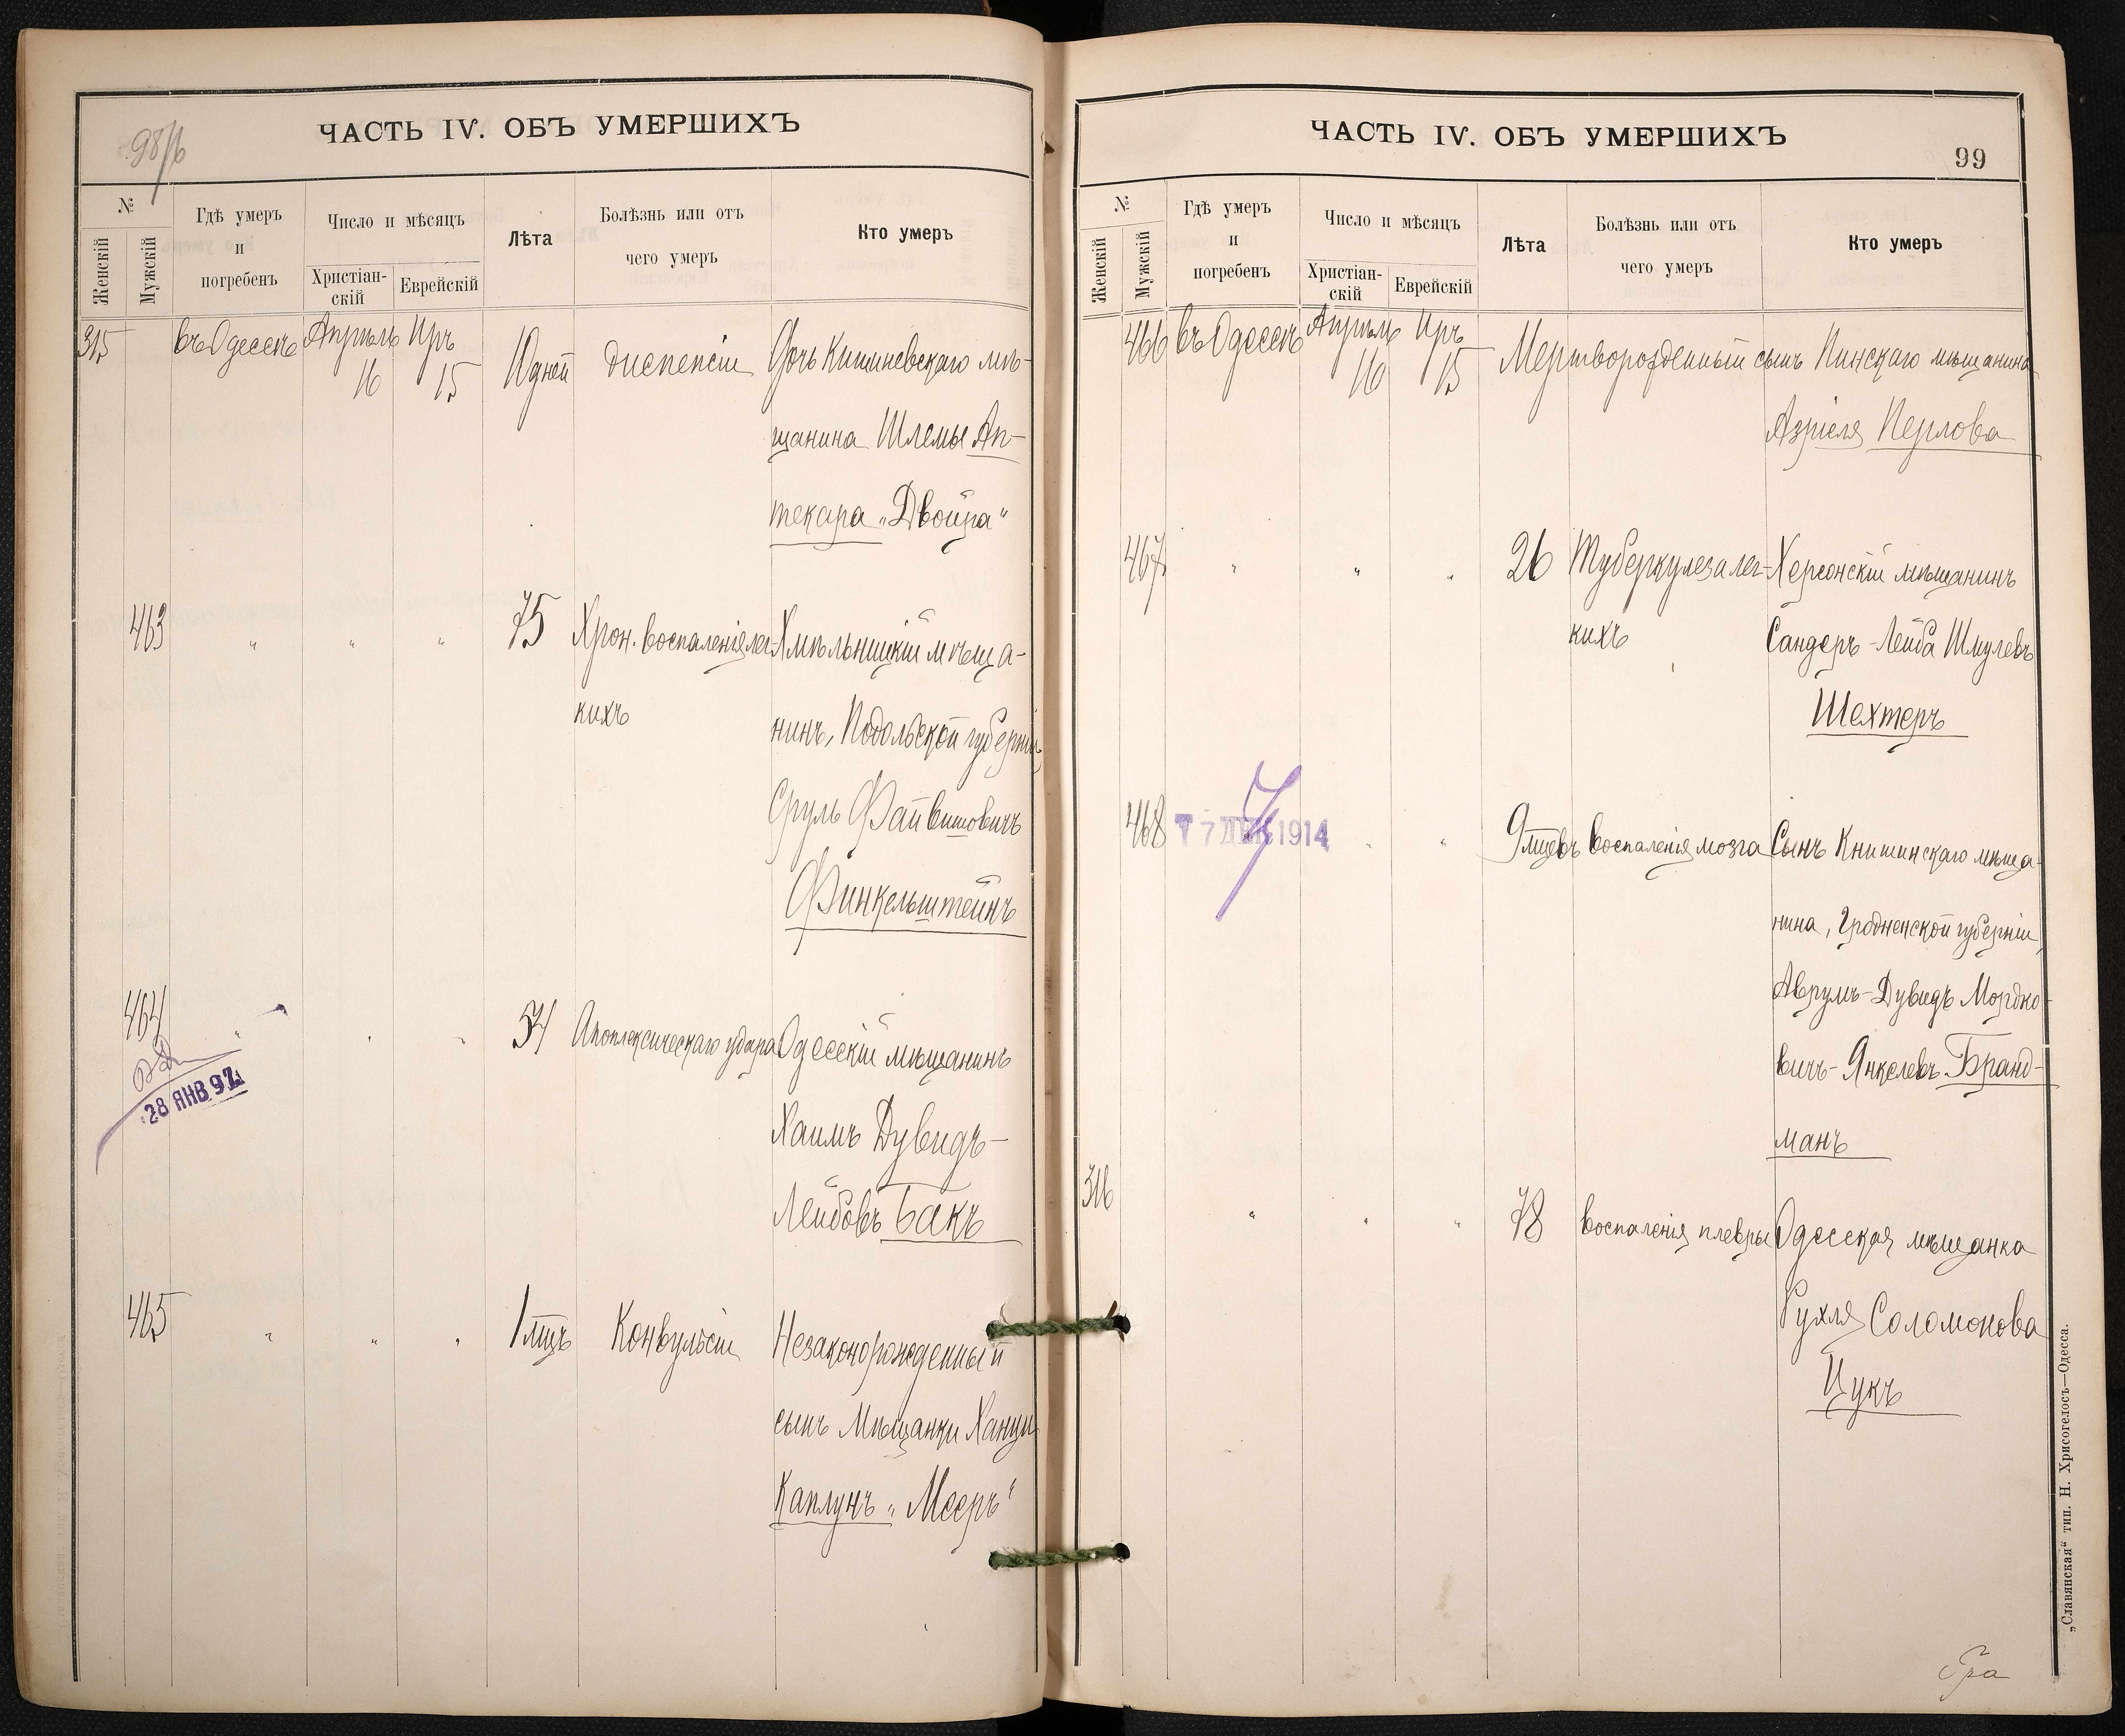 98/б
ЧАСТЬ IV. ОБЪ УМЕРШИХЪ
№
Женскій
Мужскій
Гдѣ умеръ
и
погребенъ
Число и мѣсяцъ
Христіан-
скій
Еврейскій
Лѣта
Болѣзнь или отъ
чего умеръ
Кто умеръ
315 въ Одессѣ Апрѣль 16 Иръ 15 10 дней диспепсіи Дочь Кишиневскаго мѣ-
щанина Шлемы Ап-
текара „Двойра“
463 " " " 75 Хрон. воспаленія лег- Хмѣльницкій мѣща-
кихъ нинъ, Подольской губерніи
Сруль Файвишовичъ
Финкельштейнъ
464 " " " 54 Апоплексическаго удара Одесскій мѣщанинъ
28 ЯНВ 92
Хаимъ Дувидъ-
Лейбовъ Бакъ
465 " " " 1 мцъ Конвульсіи Незаконорожденный
сынъ Мѣщанки Ханци
Каплунъ „Мееръ“
ЧАСТЬ IV. ОБЪ УМЕРШИХЪ
99
№
Женскій
Мужскій
Гдѣ умеръ
и
погребенъ
Число и мѣсяцъ
Христіан-
скій
Еврейскій
Лѣта
Болѣзнь или отъ
чего умеръ
Кто умеръ
466 въ Одессѣ Апрѣль 16 Иръ 15 Мертворожденный сынъ Пинскаго мѣщанина
Азріеля Перлова
467 " " " 26 Туберкулеза лег- Херсонскій мѣщанинъ
кихъ Сандеръ-Лейба Шмулевъ
Шехтеръ
468 7 ДЕК 1914 " " 9 мцевъ воспаленія мозга Сынъ Книшинскаго мѣща-
нина, Гродненской губерніи,
Аврумъ-Дувидъ Мордко-
вичъ-Янкелевъ Бранд-
манъ
316 " " " 78 воспаленія плевры Одесская мѣщанка
Рухля Соломонова
Цукъ
„Славянская“ тип. Н. Хрисогелосъ—Одесса.